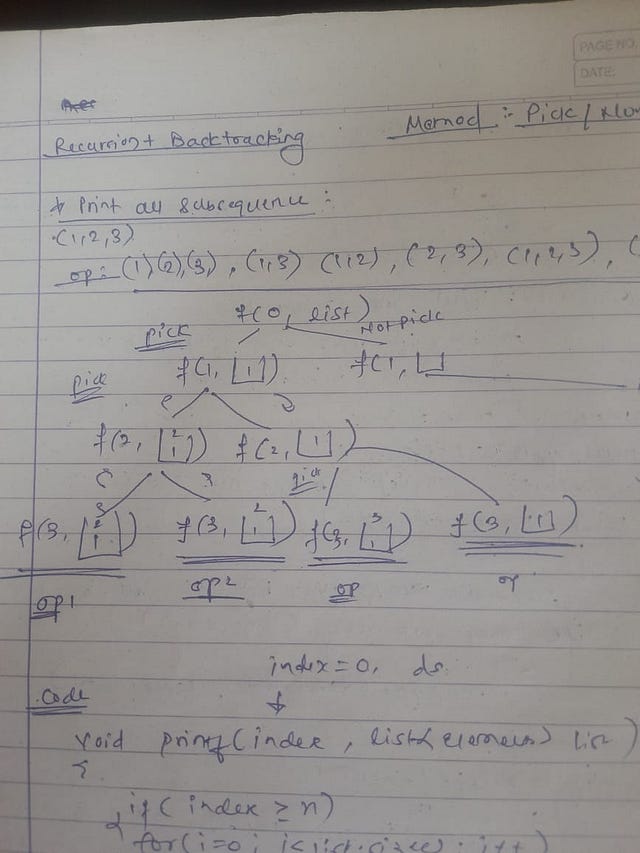 PAGE NO.
DATE:
Recursion + Backtracking
Method :- Pick /
* Print all subsequence :
(1,2,3)
op:- (1)(2),(3), (1,3) (1,2), (2,3), (1,2,3), (
f(0, list)
pick Not pick
f(1, [1]) f(1, [ ]
pick
f(2, [2 1]) f(2, [1])
pick
f(3, [3 2 1]) f(3, [2 1]) f(3, [3 1]) f(3, [1])
op1 op2 op op
index=0, ds
Code
void printf(index, list<elements> list)
{
if( index ≥ n)
{ for(i=0; i<list.size(); i++)